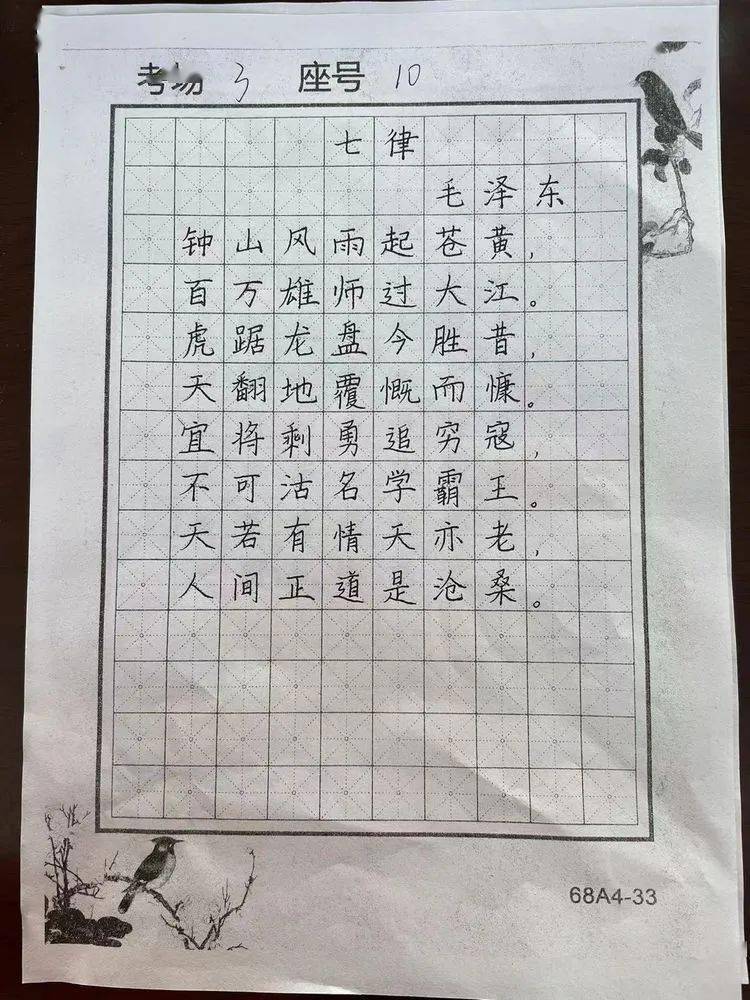 考场 3 座号 10
七律
毛泽东
钟山风雨起苍黄，
百万雄师过大江。
虎踞龙盘今胜昔，
天翻地覆慨而慷。
宜将剩勇追穷寇，
不可沽名学霸王。
天若有情天亦老，
人间正道是沧桑。
68A4-33